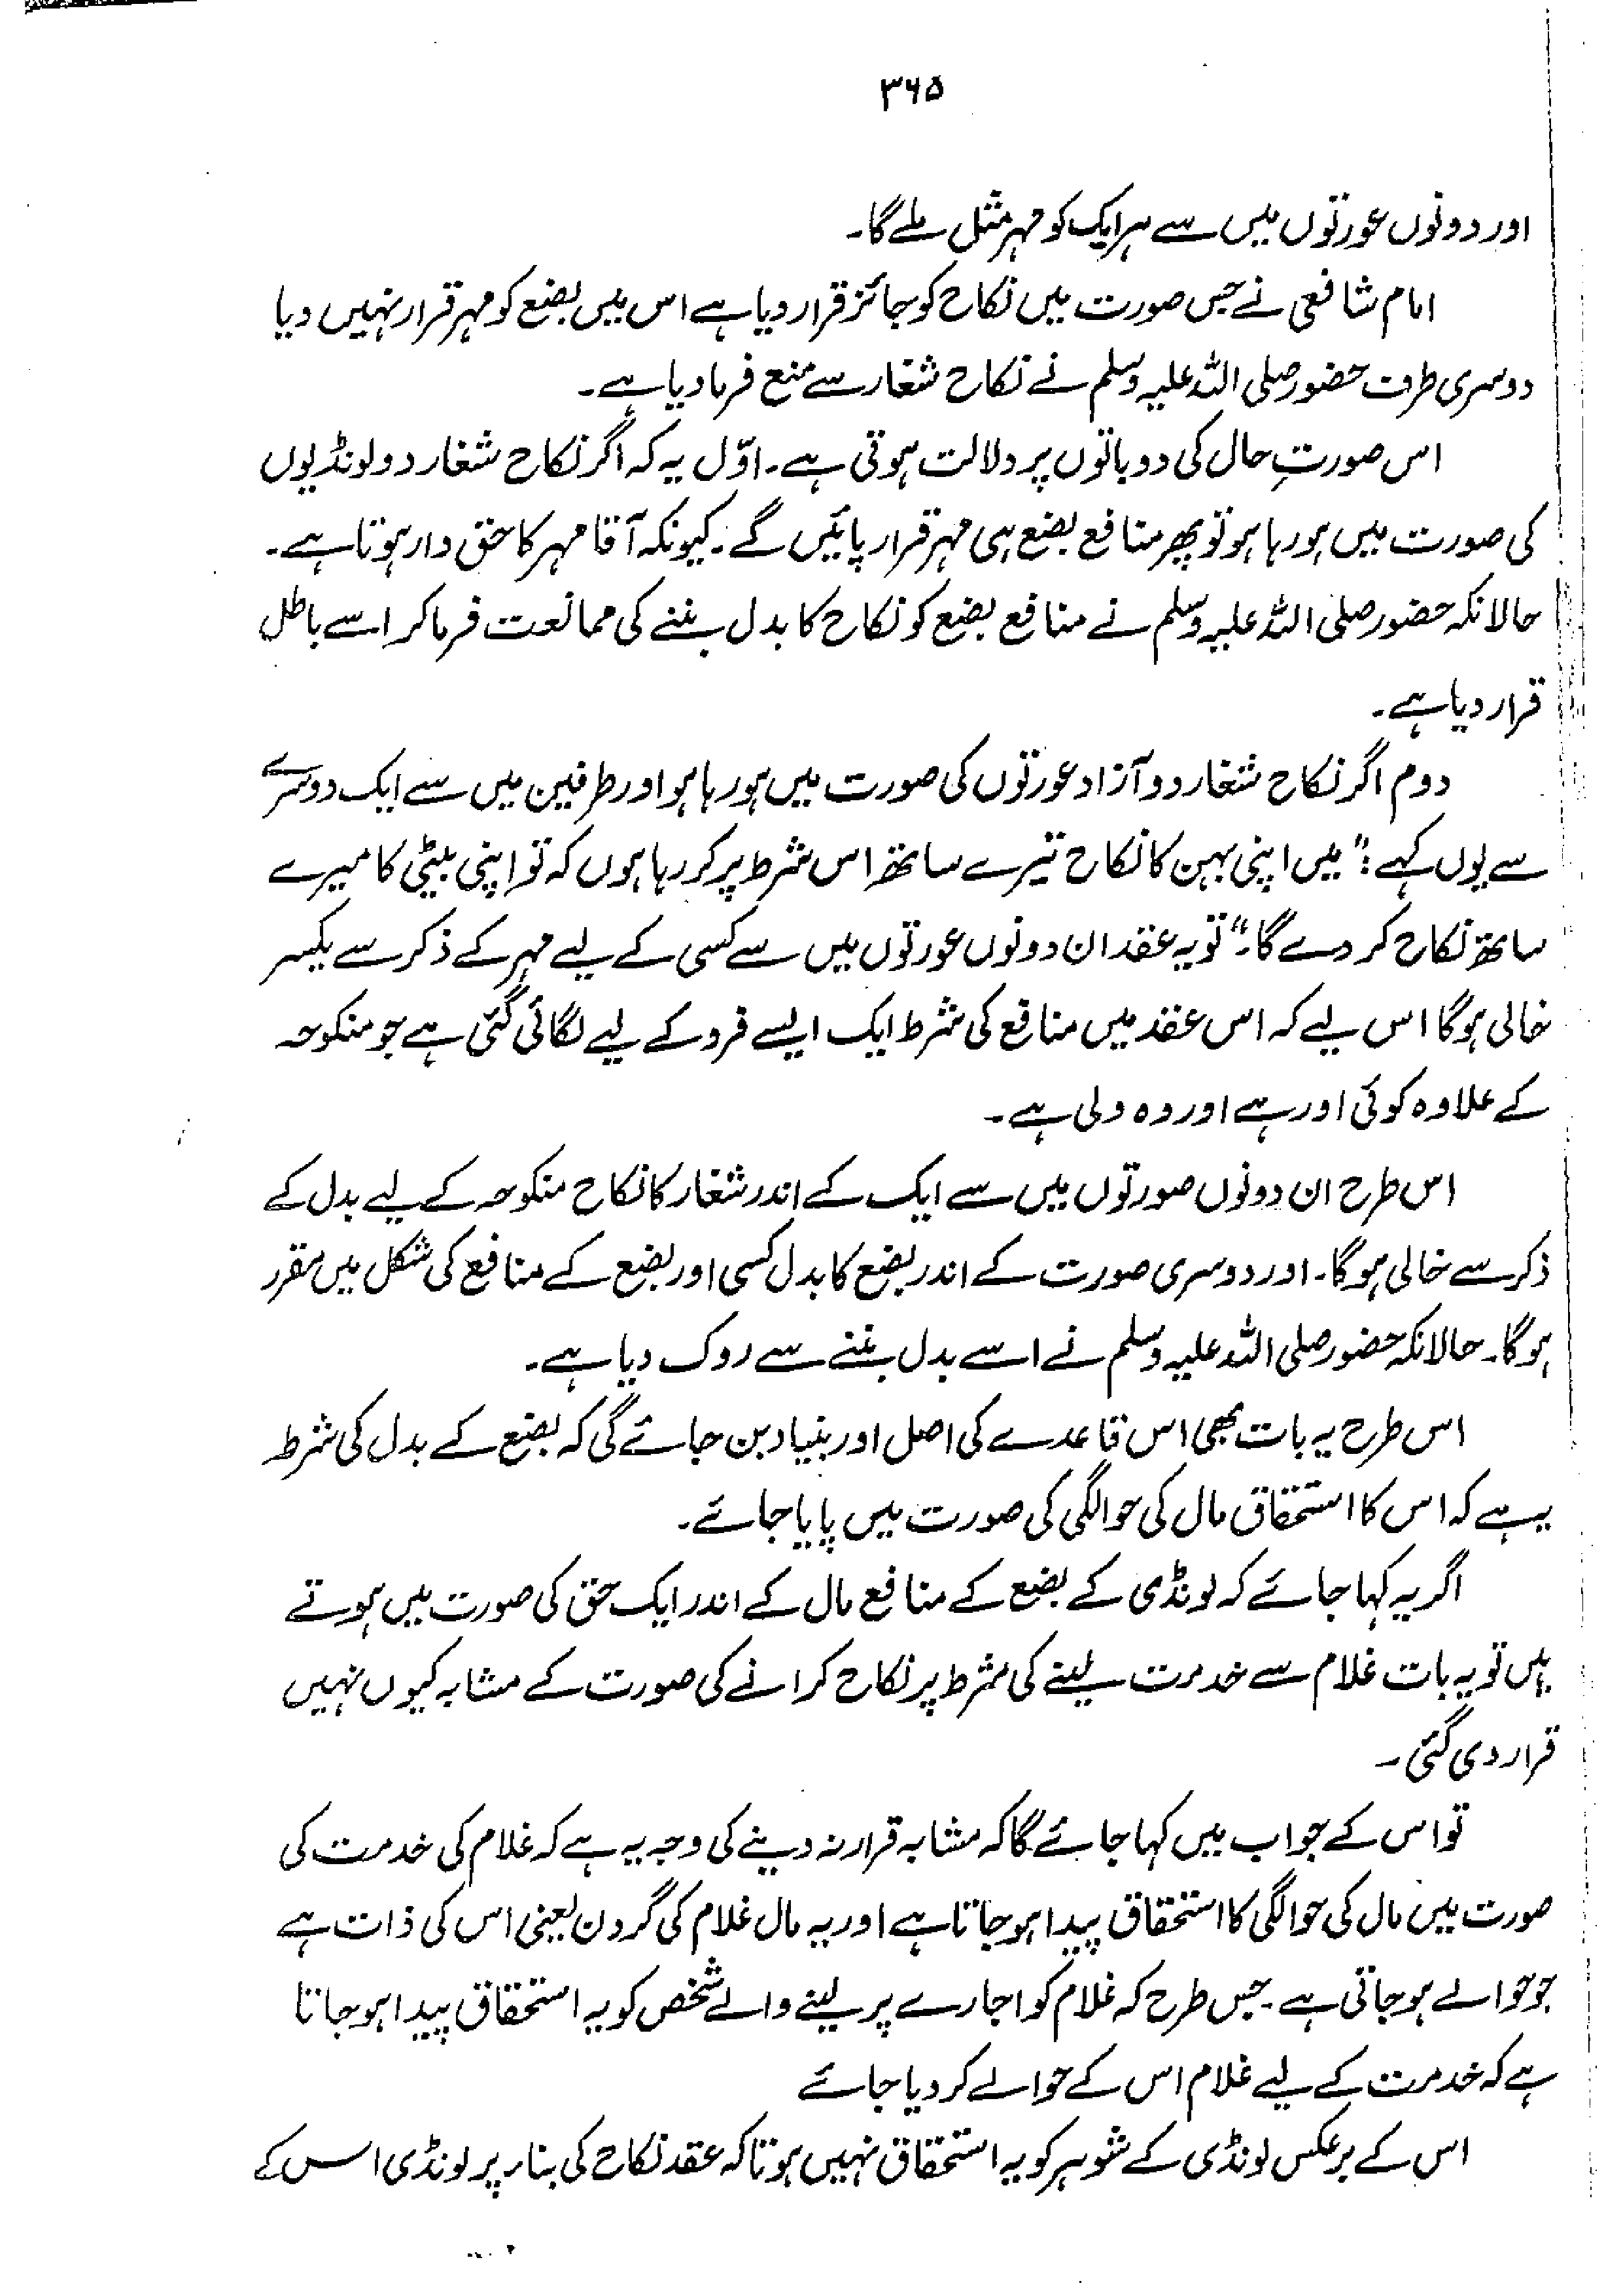 ۳۶۵
اور دونوں عورتوں میں سے ہر ایک کو مہر مثل ملے گا۔
امام شافعی نے جس صورت میں نکاح کو جائز قرار دیا ہے اس میں بضع کو مہر قرار نہیں دیا
دوسری طرف حضور صلی اللہ علیہ وسلم نے نکاح شغار سے منع فرما دیا ہے۔
اس صورتِ حال کی دو باتوں پر دلالت ہوتی ہے۔ اوّل یہ کہ اگر نکاح شغار دو لونڈیوں
کی صورت میں ہو رہا ہو تو پھر منافع بضع ہی مہر قرار پائیں گے۔ کیونکہ آقا مہر کا حق دار ہوتا ہے۔
حالانکہ حضور صلی اللہ علیہ وسلم نے منافع بضع کو نکاح کا بدل بننے کی ممانعت فرما کر اسے باطل
قرار دیا ہے۔
دوم اگر نکاح شغار دو آزاد عورتوں کی صورت میں ہو رہا ہو اور طرفین میں سے ایک دوسرے
سے یوں کہے: "میں اپنی بہن کا نکاح تیرے ساتھ اس شرط پر کر رہا ہوں کہ تو اپنی بیٹی کا میرے
ساتھ نکاح کر دے گا۔" تو یہ عقد ان دونوں عورتوں میں سے کسی کے لیے مہر کے ذکر سے یکسر
خالی ہوگا اس لیے کہ اس عقد میں منافع کی شرط ایک ایسے فرد کے لیے لگائی گئی ہے جو منکوحہ
کے علاوہ کوئی اور ہے اور وہ ولی ہے۔
اس طرح ان دونوں صورتوں میں سے ایک کے اندر شغار کا نکاح منکوحہ کے لیے بدل کے
ذکر سے خالی ہوگا۔ اور دوسری صورت کے اندر بضع کا بدل کسی اور بضع کے منافع کی شکل میں مقرر
ہوگا۔ حالانکہ حضور صلی اللہ علیہ وسلم نے اسے بدل بننے سے روک دیا ہے۔
اس طرح یہ بات بھی اس قاعدے کی اصل اور بنیاد بن جائے گی کہ بضع کے بدل کی شرط
یہ ہے کہ اس کا استحقاق مال کی حوالگی کی صورت میں پایا جائے۔
اگر یہ کہا جائے کہ لونڈی کے بضع کے منافع مال کے اندر ایک حق کی صورت میں ہوتے
ہیں تو یہ بات غلام سے خدمت لینے کی شرط پر نکاح کرانے کی صورت کے مشابہ کیوں نہیں
قرار دی گئی۔
تو اس کے جواب میں کہا جائے گا کہ مشابہ قرار نہ دینے کی وجہ یہ ہے کہ غلام کی خدمت کی
صورت میں مال کی حوالگی کا استحقاق پیدا ہو جاتا ہے اور یہ مال غلام کی گردن یعنی اس کی ذات ہے
جو حوالے ہو جاتی ہے۔ جس طرح کہ غلام کو اجارے پر لینے والے شخص کو یہ استحقاق پیدا ہو جاتا
ہے کہ خدمت کے لیے غلام اس کے حوالے کر دیا جائے
اس کے برعکس لونڈی کے شوہر کو یہ استحقاق نہیں ہوتا کہ عقد نکاح کی بنا پر لونڈی اس کے